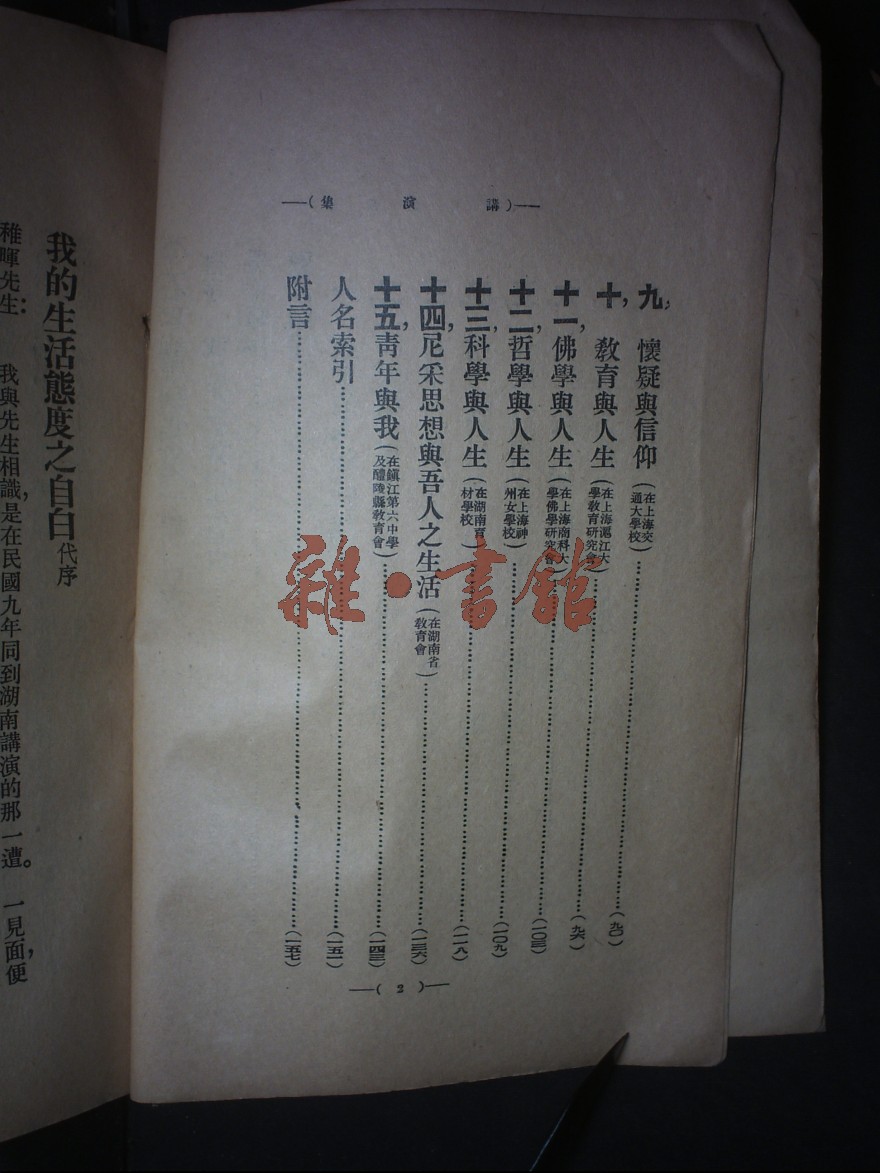 講演集
九，懷疑與信仰（在上海交通大學校）……（九〇）
十，敎育與人生（在上海滬江大學敎育研究會）……（九六）
十一，佛學與人生（在上海商科大學佛學研究會）……（一〇三）
十二，哲學與人生（在上海神州女學校）……（一〇九）
十三，科學與人生（在湖南育材學校）……（一一八）
十四，尼采思想與吾人之生活（在湖南省敎育會）……（一三六）
十五，靑年與我（在鎭江第六中學及醴陵縣敎育會）……（一四三）
人名索引……（一五一）
附言……（一五七）
—( 2 )—
我的生活態度之自白代序
稚暉先生：　我與先生相識，是在民國九年同到湖南講演的那一遭。　一見面，便
雜·書館